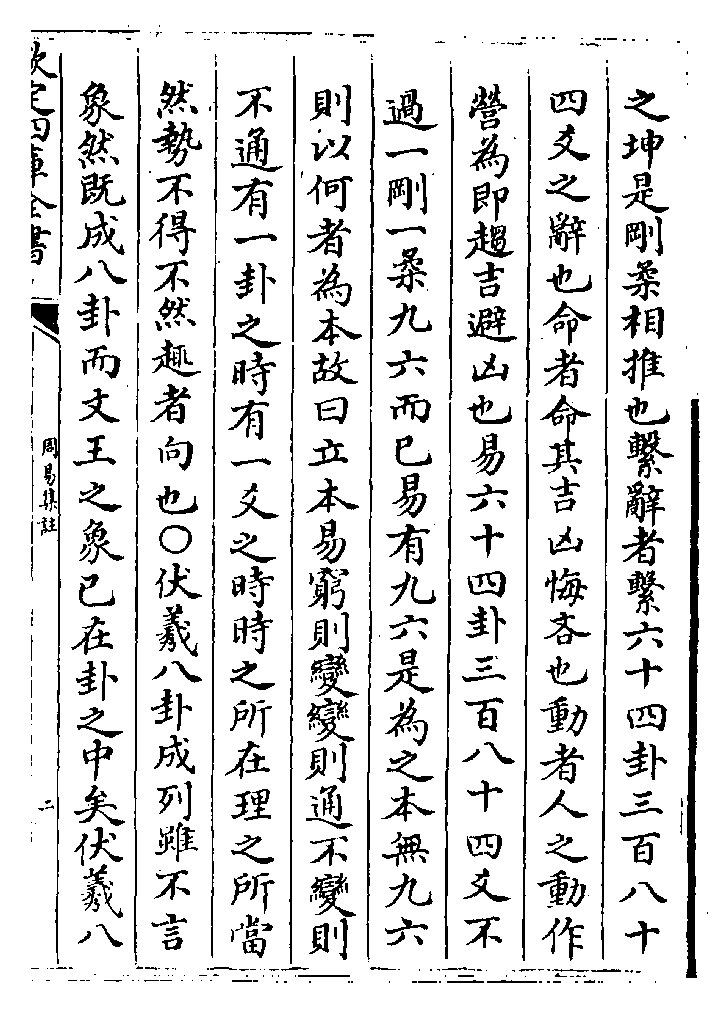 之坤是剛柔相推也繫辭者繫六十四卦三百八十
四爻之辭也命者命其吉凶悔吝也動者人之動作
營為即趨吉避凶也易六十四卦三百八十四爻不
過一剛一柔九六而已易有九六是為之本無九六
則以何者為本故曰立本易窮則變變則通不變則
不通有一卦之時有一爻之時時之所在理之所當
然勢不得不然趣者向也〇伏羲八卦成列雖不言
象然既成八卦而文王之象已在卦之中矣伏羲八
欽定四庫全書
周易集註
二